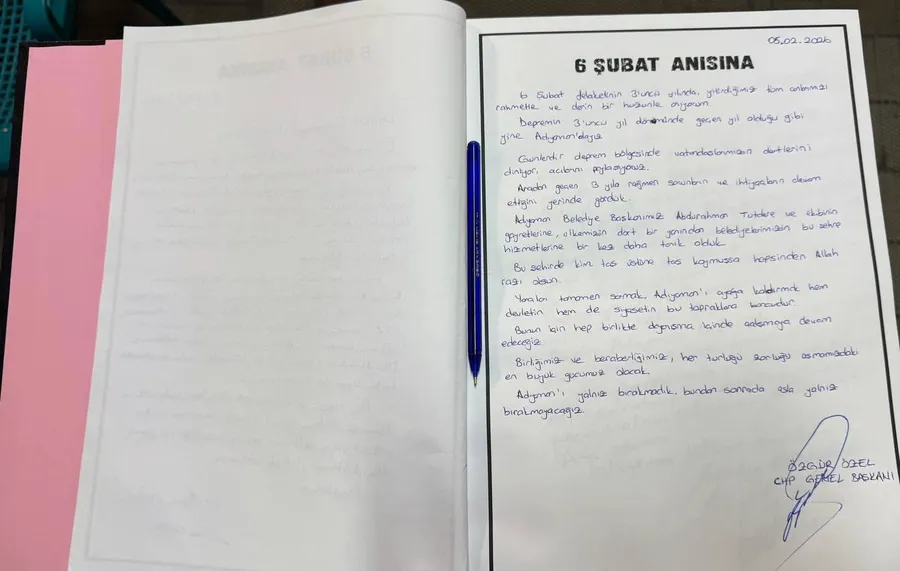 05.02.2026
6 ŞUBAT ANISINA
6 Şubat felaketinin 3'üncü yılında, yitirdiğimiz tüm canlarımızı
rahmetle ve derin bir hüzünle anıyorum.
Depremin 3'üncü yıl dönümünde geçen yıl olduğu gibi
yine Adıyaman'dayız.
Günlerdir deprem bölgesinde vatandaşlarımızın dertlerini
dinliyor, acılarını paylaşıyoruz.
Aradan geçen 3 yıla rağmen sorunların ve ihtiyaçların devam
ettiğini yerinde gördük.
Adıyaman Belediye Başkanımız Abdurrahman Tutdere ve ekibinin
gayretlerine, ülkemizin dört bir yanından belediyelerimizin bu şehre
hizmetlerine bir kez daha tanık olduk.
Bu şehirde kim taş üstüne taş koymuşsa hepsinden Allah
razı olsun.
Yaraları tamamen sarmak, Adıyaman'ı ayağa kaldırmak hem
devletin hem de siyasetin bu topraklara borcudur.
Bunun için hep birlikte dayanışma içinde çalışmaya devam
edeceğiz.
Birliğimiz ve beraberliğimiz, her türlüğü zorluğu aşmamızdaki
en büyük gücümüz olacak.
Adıyaman'ı yalnız bırakmadık, bundan sonrada asla yalnız
bırakmayacağız.
ÖZGÜR ÖZEL
CHP GENEL BAŞKANI